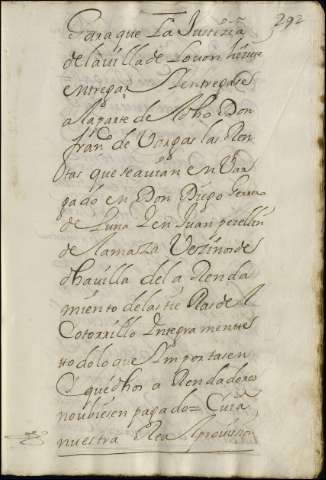 292
Para que La Justiçia
de la villa de Lovon hiçiese
entregar y entregase
a la parte de dho Don
fran.co de Vargas las Ren
tas que se auian enbar
gado en Don Diego
de Luna y en Juan perellin
de Vezinos de
dha villa del aRenda
miento de las tieRas del
Cotorrillo Integramente
todo lo que Importasen
y que dhos aRendadores
no ubiesen pagado = Cuia
nuestra Real provision